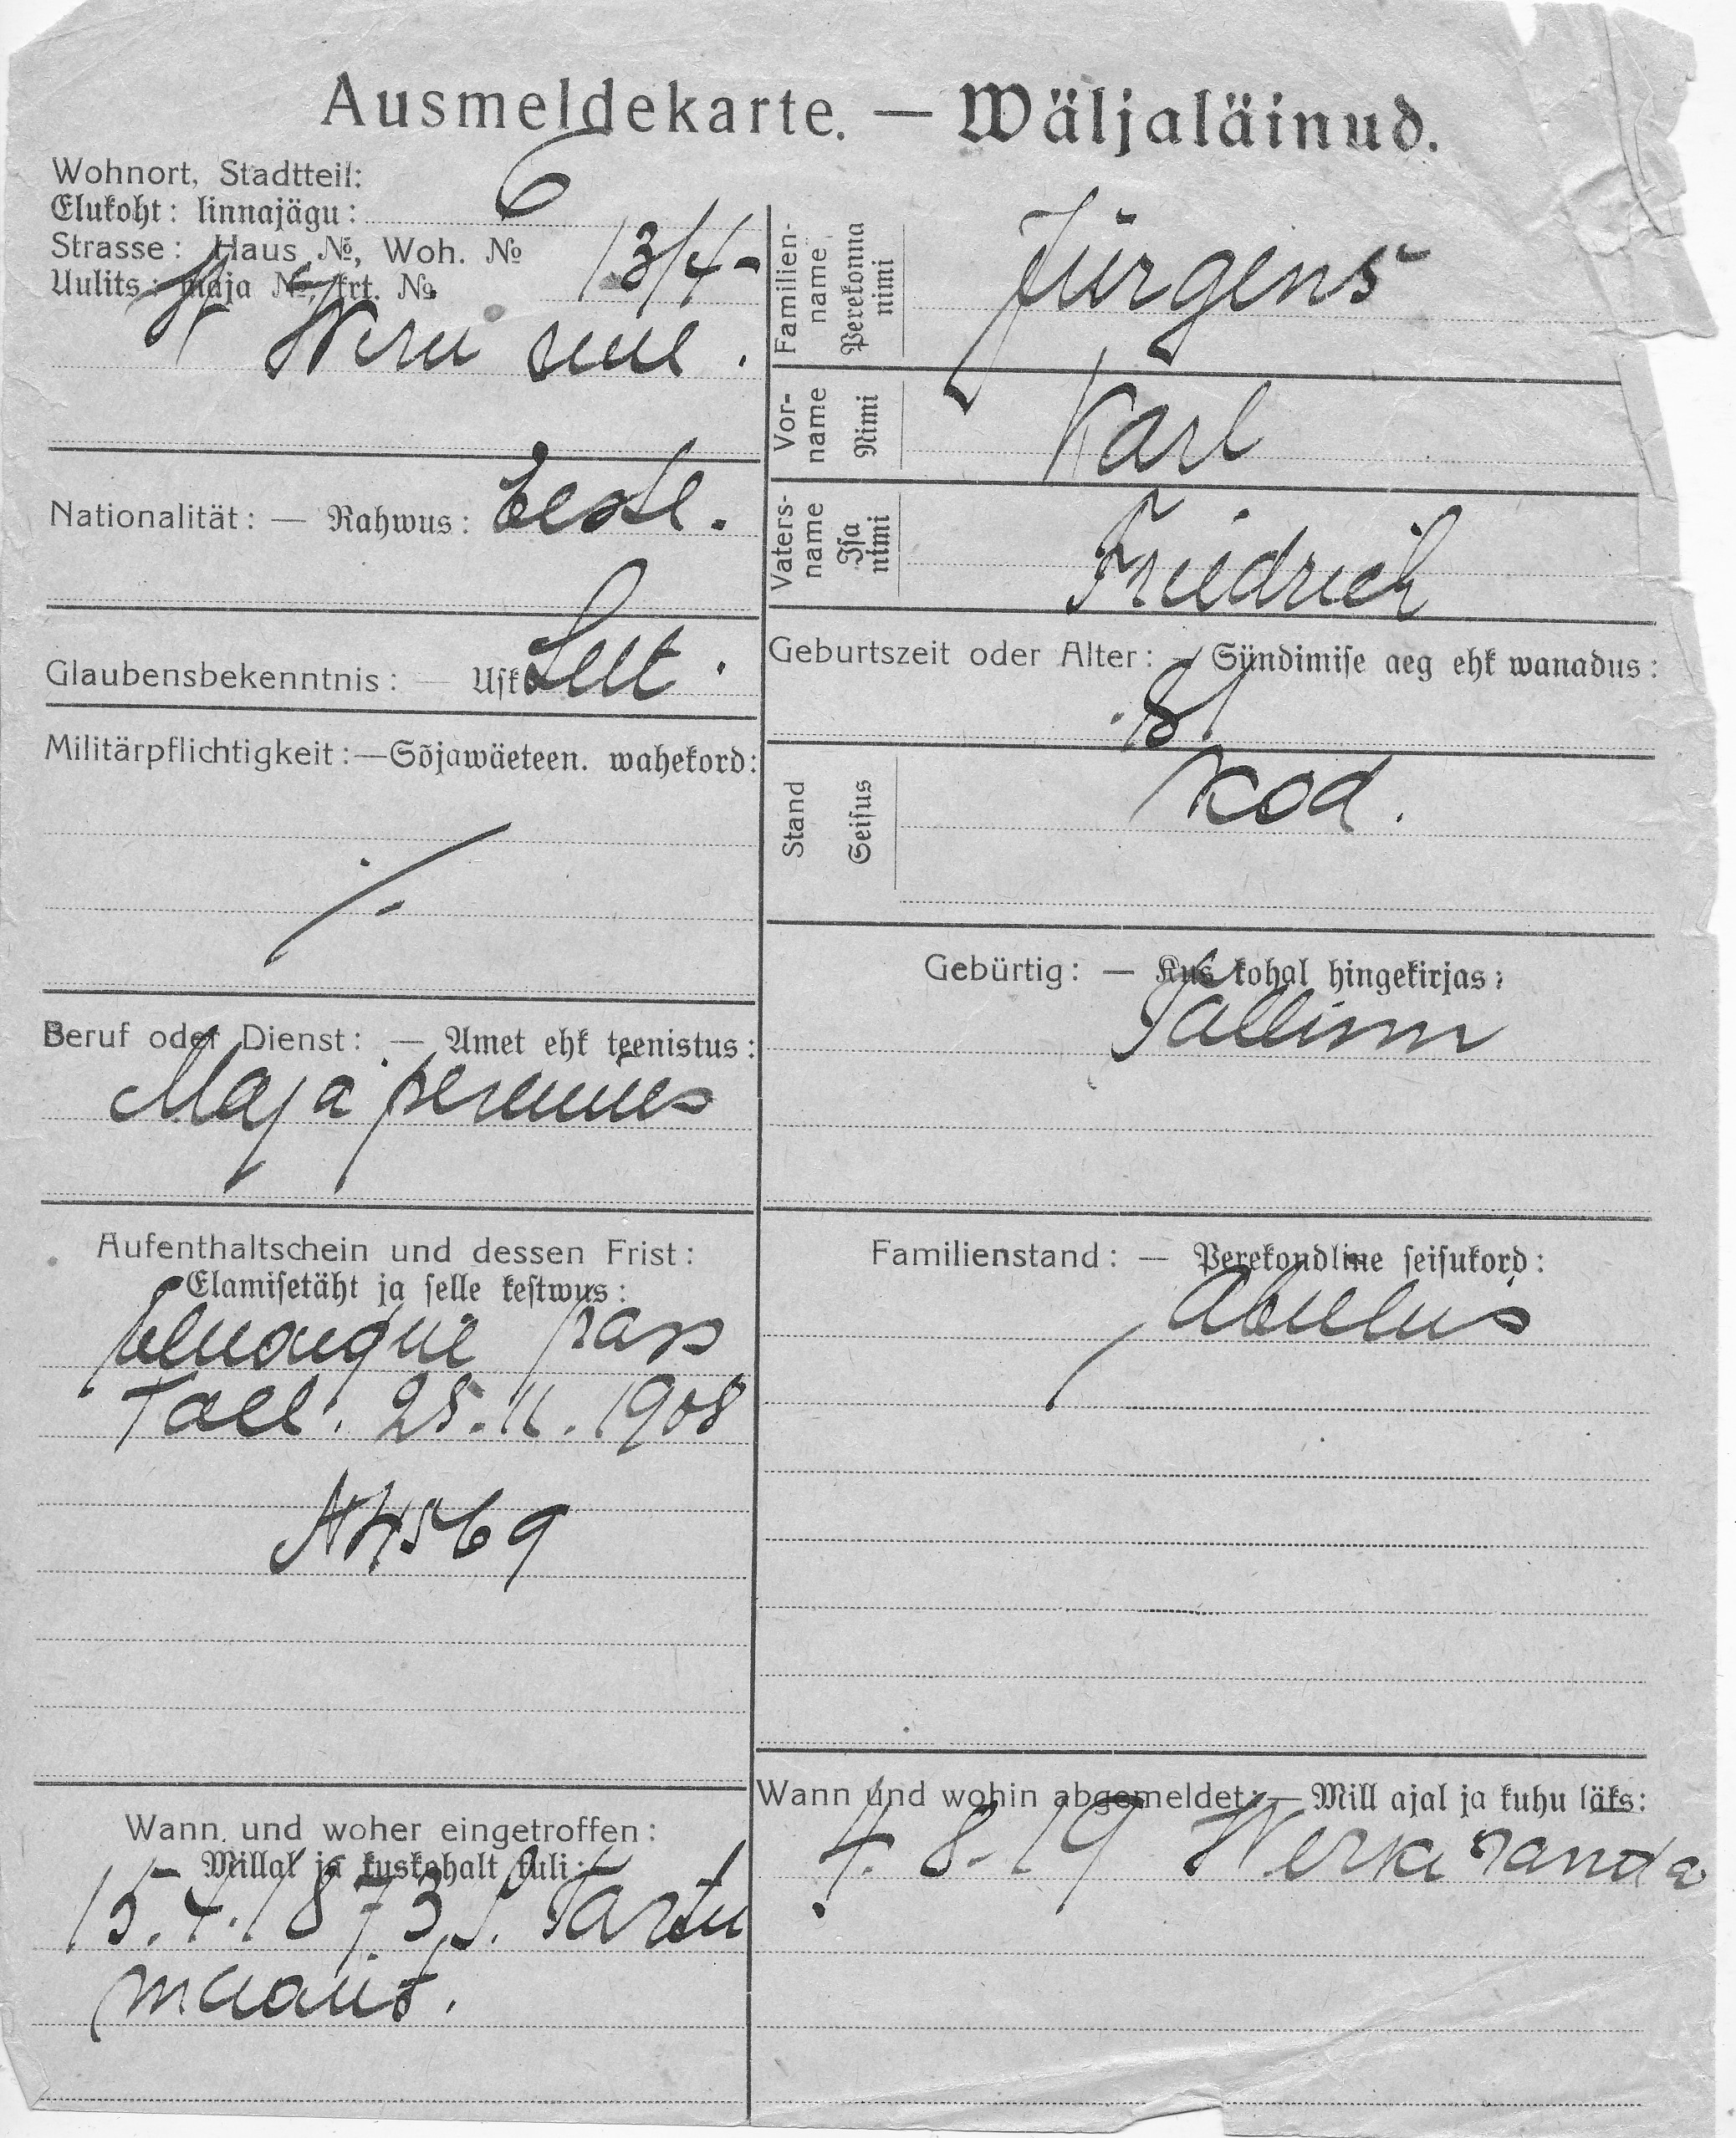 Ausmeldekarte. — Wäljaläinud.
Wohnort, Stadtteil:
Elukoht: linnajägu: 6
Strasse: Haus №, Woh. №
Uulits: maja №, krt. №. 13/4-
Familien-name Perekonna nimi Jürgens
Vor-name Nimi Karl
Nationalität: — Rahwus: Eestl.
Vaters-name Isa nimi Friedrich
Glaubensbekenntnis: — Usk Lut.
Geburtszeit oder Alter: — Sündimise aeg ehk wanadus:
81
Militärpflichtigkeit:—Sõjawäeteen. wahekord:
Stand Seisus Kod.
Gebürtig: — Kus kohal hingekirjas:
Tallinn
Beruf oder Dienst: — Amet ehk teenistus:
Maja peremees
Aufenthaltschein und dessen Frist:
Elamisetäht ja selle kestwus:
pass
Tall. 25. 11. 1908
N 4569
Familienstand: — Perekondline seisukord:
Abielus
Wann und woher eingetroffen:
Millal ja kuskohalt tuli:
15.4.1873 Tartu
maalt.
Wann und wohin abgemeldet: — Mill ajal ja kuhu läks:
4. 8. 19 randa